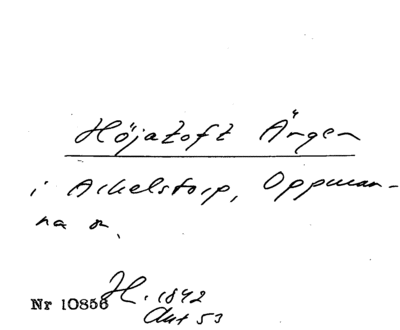 Höjatoft Ängen
i Arkelstorp, Oppman-
na sn.
Nr 10856 H. 1842
Akt 53